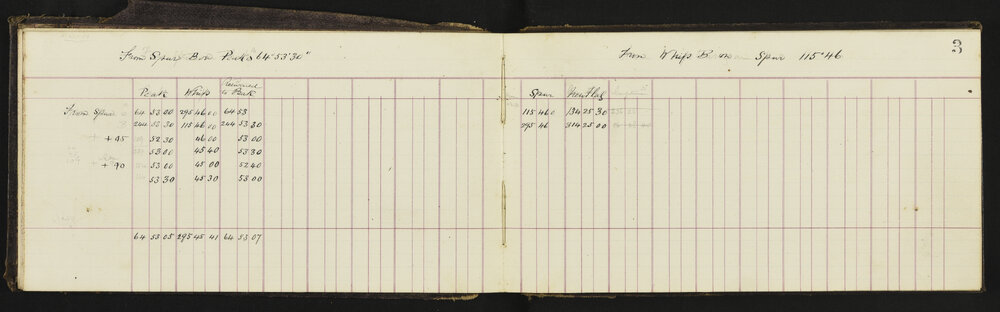 3
From Spur Bore Peak 64°53'30"
Peak Whip Returned to Peak
From Spur 64 53 00 295 46 00 64 53
244 53 30 115 46 00 244 53 30
+ 45 52 30 46 00 53 00
53 00 45 40 53 30
+ 90 53 00 45 00 52 40
53 30 45 30 53 00
64 53 05 295 45 41 64 53 07
From Whip Spur 115°46
Spur
115 46 0 134 25 30
295 46 314 25 00